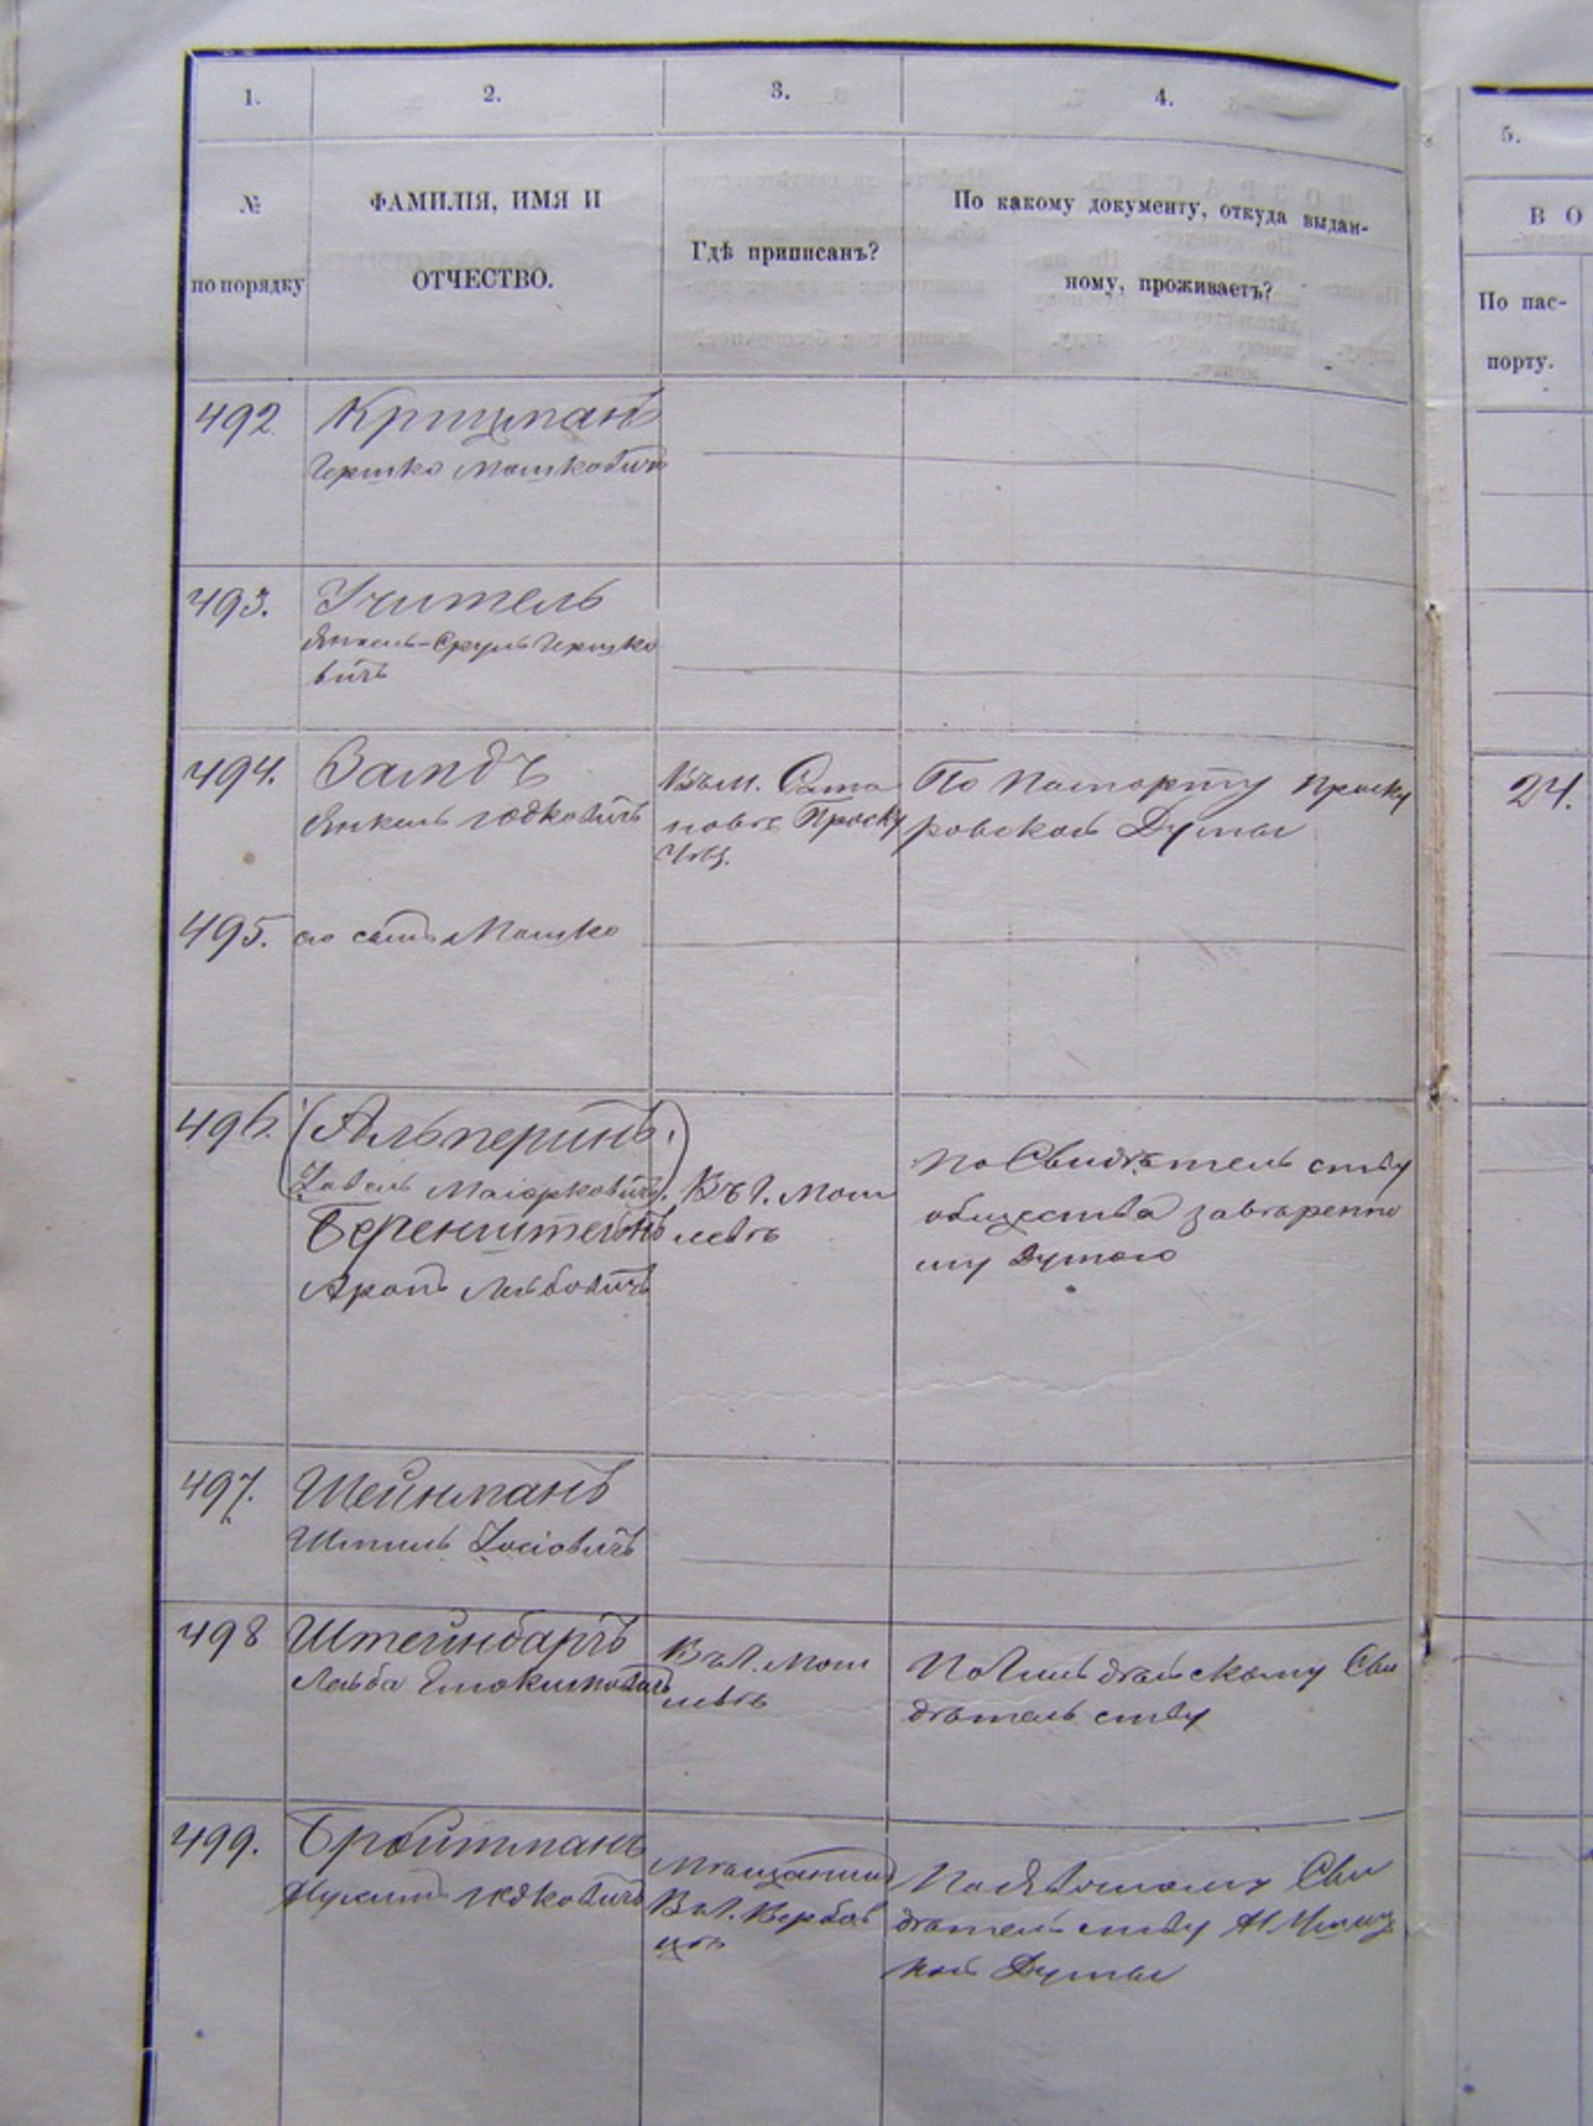 1. 2. 3. 4. 5.
№ по порядку
ФАМИЛІЯ, ИМЯ И
ОТЧЕСТВО.
Гдѣ приписанъ?
По какому документу, откуда выдан-
ному, проживаетъ?
В О
По пас-
порту.
492 Крицманъ
Гершко Мошковичъ
493. Учитель
Янкель-Сруль Гершко
вичъ
494. Замдъ
Янкель Юдковичъ
Въ м. Сата
новѣ Проску
По Паспорту Проску
ровской Думы
24.
495. его сынъ Мошко
496. (Альперинъ.
Маіорковичъ.)
Беренштейнъ
Аронъ Лейбовичъ
Въ г. Моги
левѣ
По Свидѣтельству
общества завѣренно
му Думою
497. Шейнманъ
Шмиль Іосіовичъ
498 Штейнбаргъ
Лейба
Въ г. Моги
левѣ
Сви
дѣтельству
499. Бройтманъ
Нухимъ Юдковичъ
Мѣщанинъ
Въ г. Вербов
цѣ
По Явочному Сви
дѣтельству
кой Думы